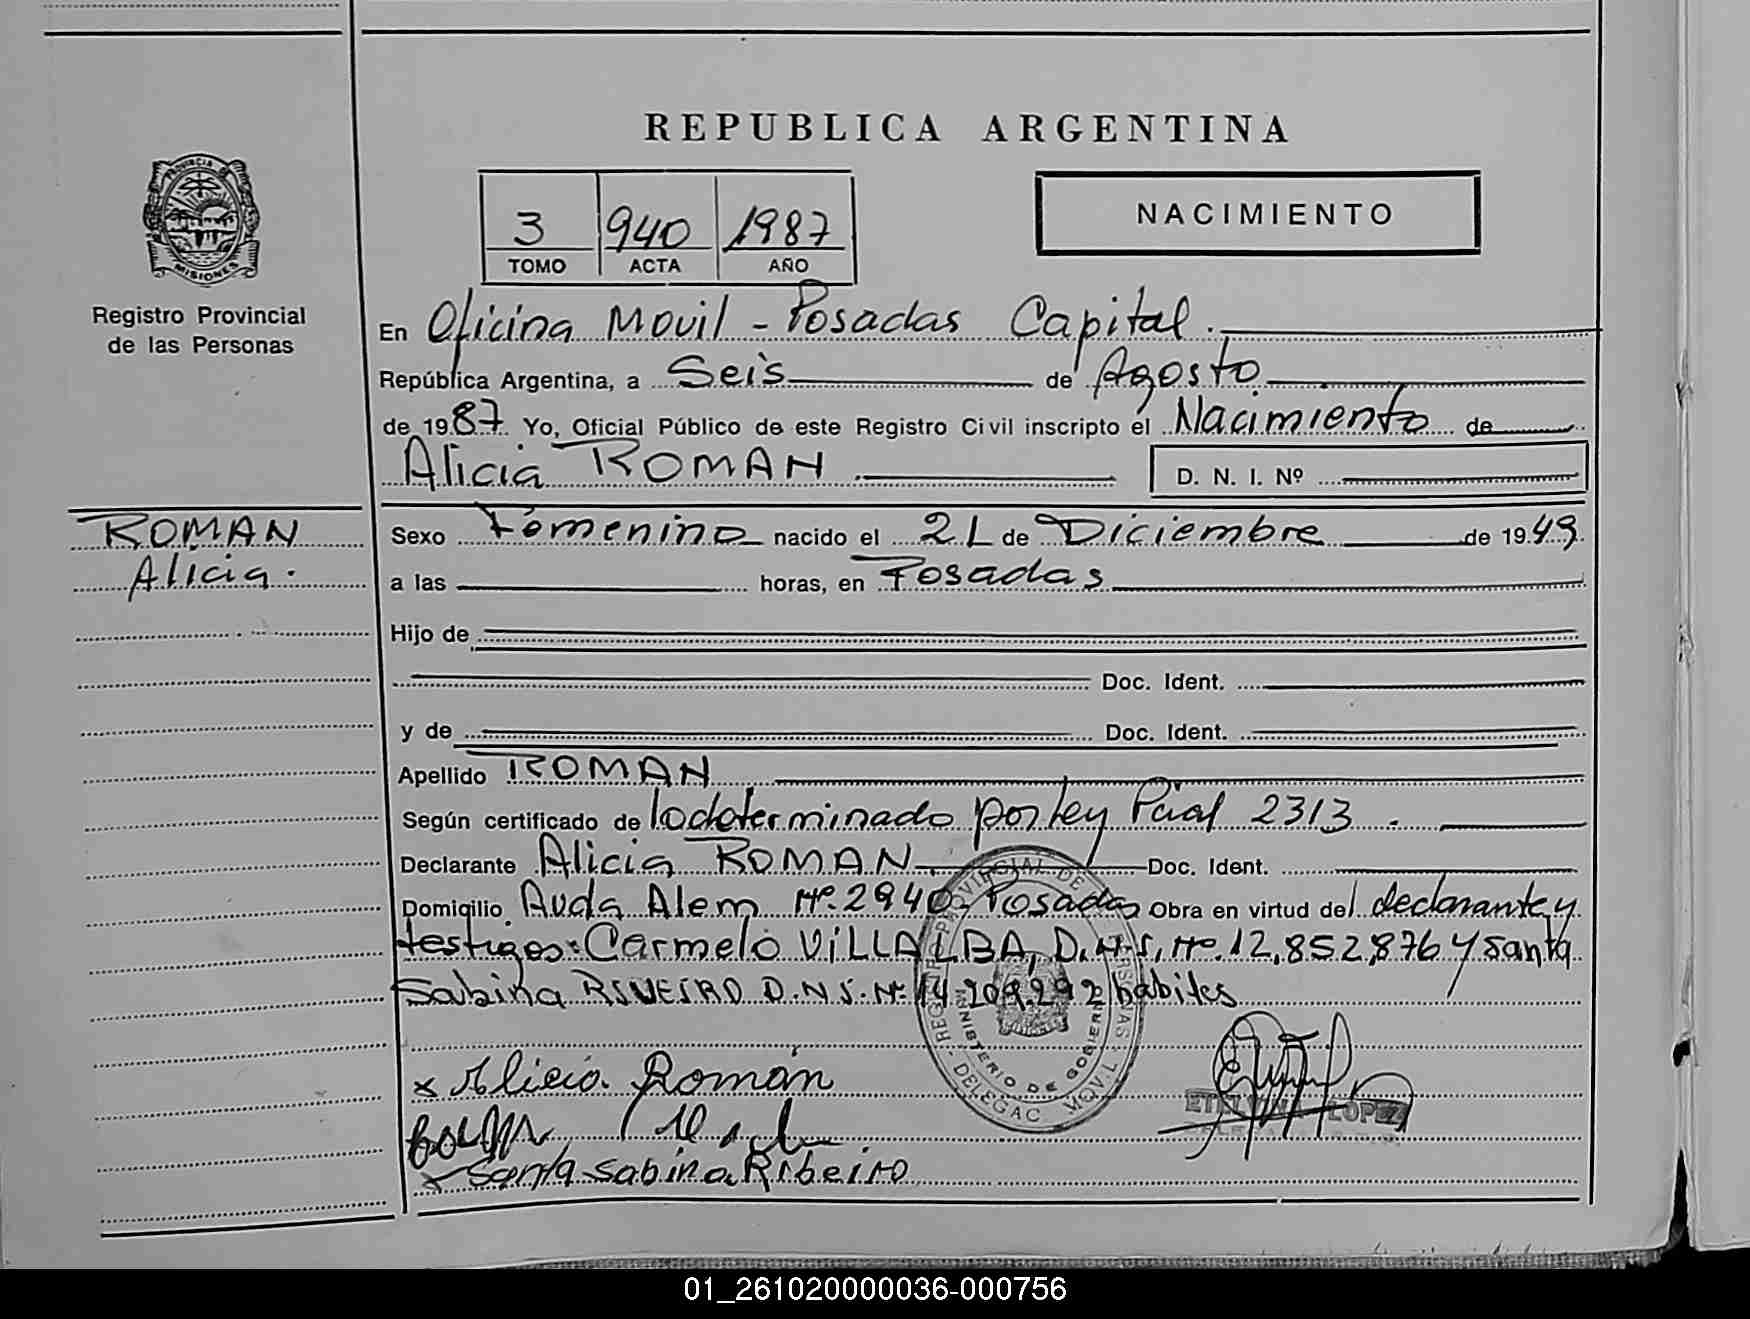 REPUBLICA ARGENTINA
PROVINCIA DE MISIONES
Registro Provincial
de las Personas
3 940 1987
TOMO ACTA AÑO
NACIMIENTO
En Oficina Movil - Posadas Capital.
República Argentina, a Seis de Agosto
de 1987. Yo, Oficial Público de este Registro Civil inscripto el Nacimiento de
Alicia ROMAN D. N. I. Nº
ROMAN
Alicia.
Sexo Femenino nacido el 21 de Diciembre de 1949
a las horas, en Posadas
Hijo de
Doc. Ident.
y de Doc. Ident.
Apellido ROMAN
Según certificado de lo determinado por Ley Pcial 2313.
Declarante Alicia ROMAN Doc. Ident.
Domicilio Avda Alem Nº 2940, Posadas Obra en virtud del declarante y
testigos: Carmelo VILLALBA, D.N.I. Nº. 12,852,876 y Santa
Sabina RIVEIRO D.N.I. Nº 14.209.292 habiles
REGISTRO PROVINCIAL DE LAS PERSONAS - DELEGAC MOVIL -
MINISTERIO DE GOBIERNO
x Alicia Román
ETELVINA LOPEZ
x Santa Sabina Ribeiro
01_261020000036-000756